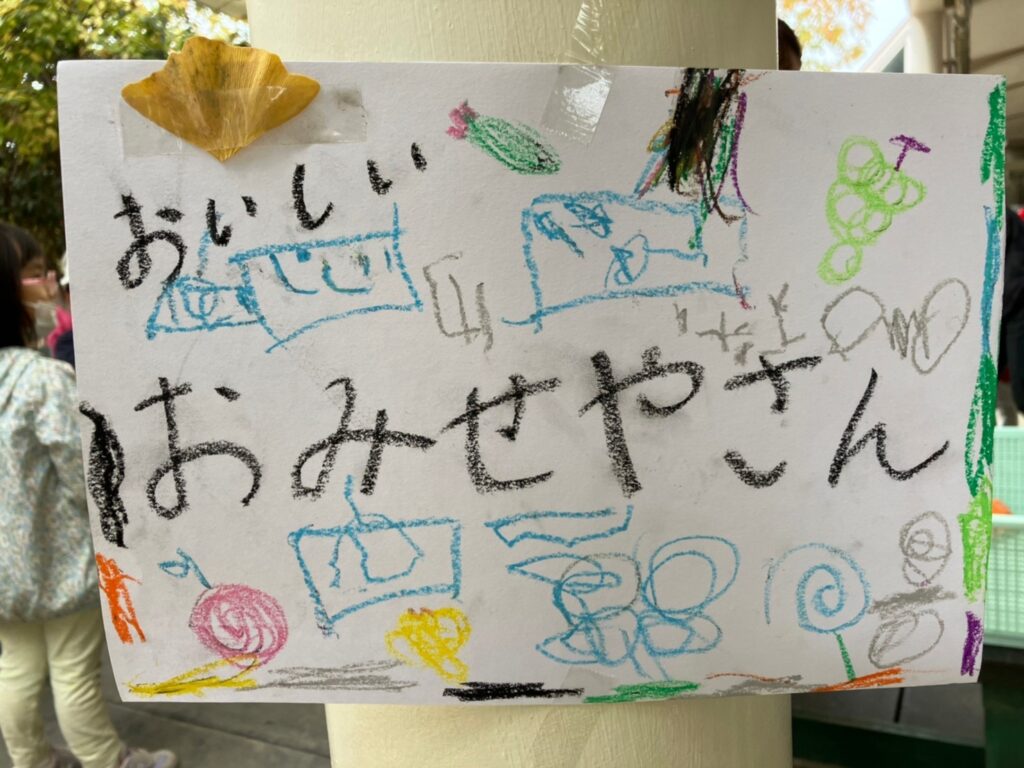 おいしい
おみせやさん